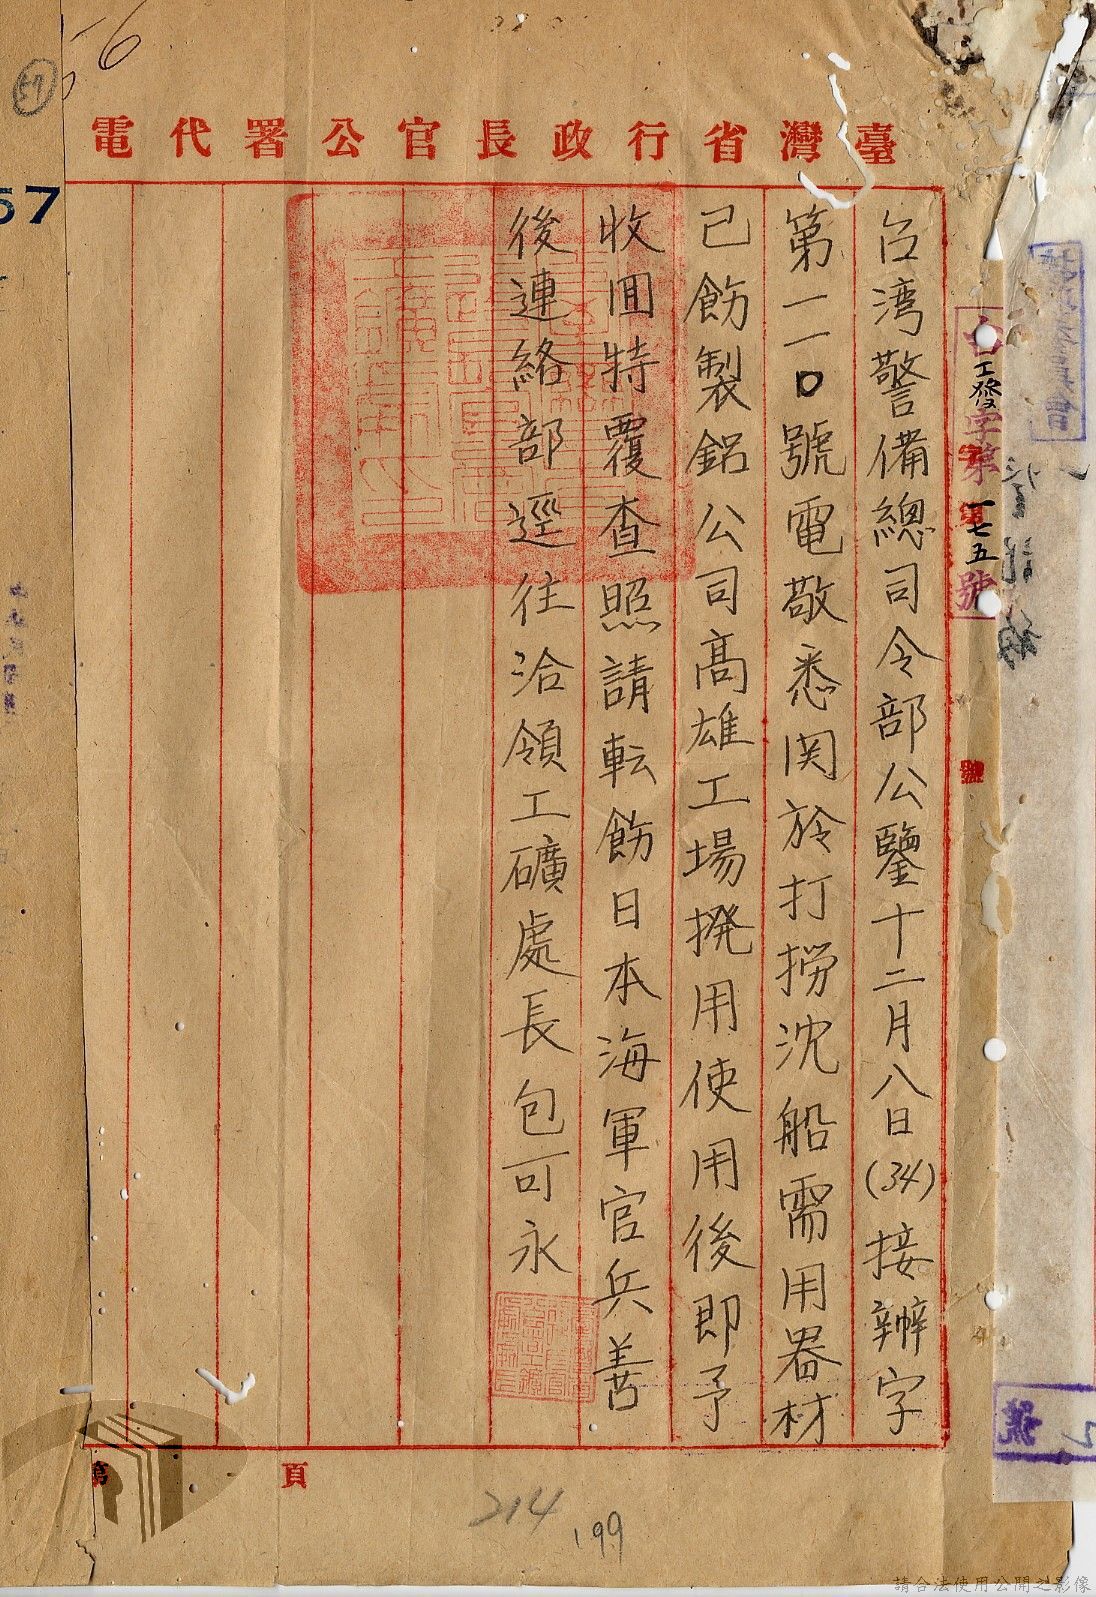 臺灣省行政長官公署代電
工發字第一七五號
台湾警備總司令部公鑒十二月八日(34)接辦字
第一一〇號電敬悉関於打撈沈船需用器材
已飭製鋁公司高雄工場撥用使用後即予
收囬特覆查照請転飭日本海軍官兵善
後連絡部逕往洽領工礦處長包可永
第 頁
214
199
56
57
67
請合法使用公開之影像